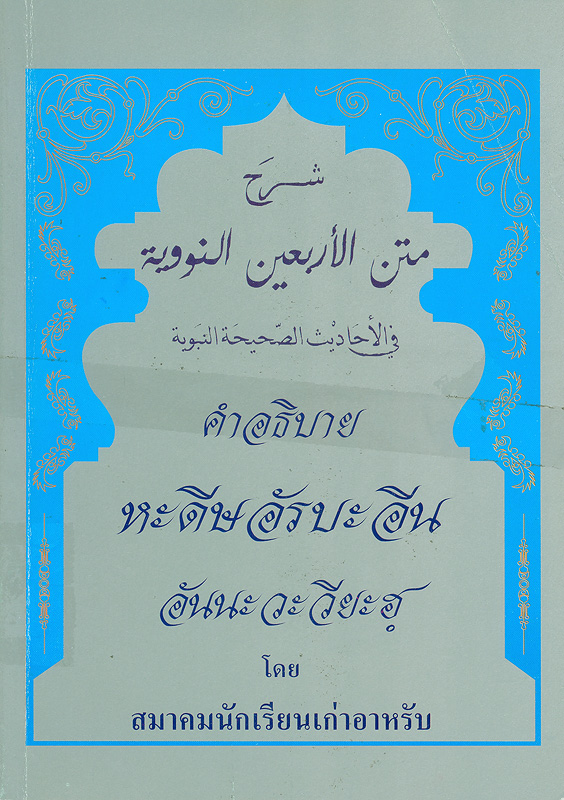 شرح
متن الأربعين النووية
في الأحاديث الصّحيحة النبوية
คำอธิบาย
หะดีษอัรบะอีน
อันนะวะวียะฮฺ
โดย
สมาคมนักเรียนเก่าอาหรับ